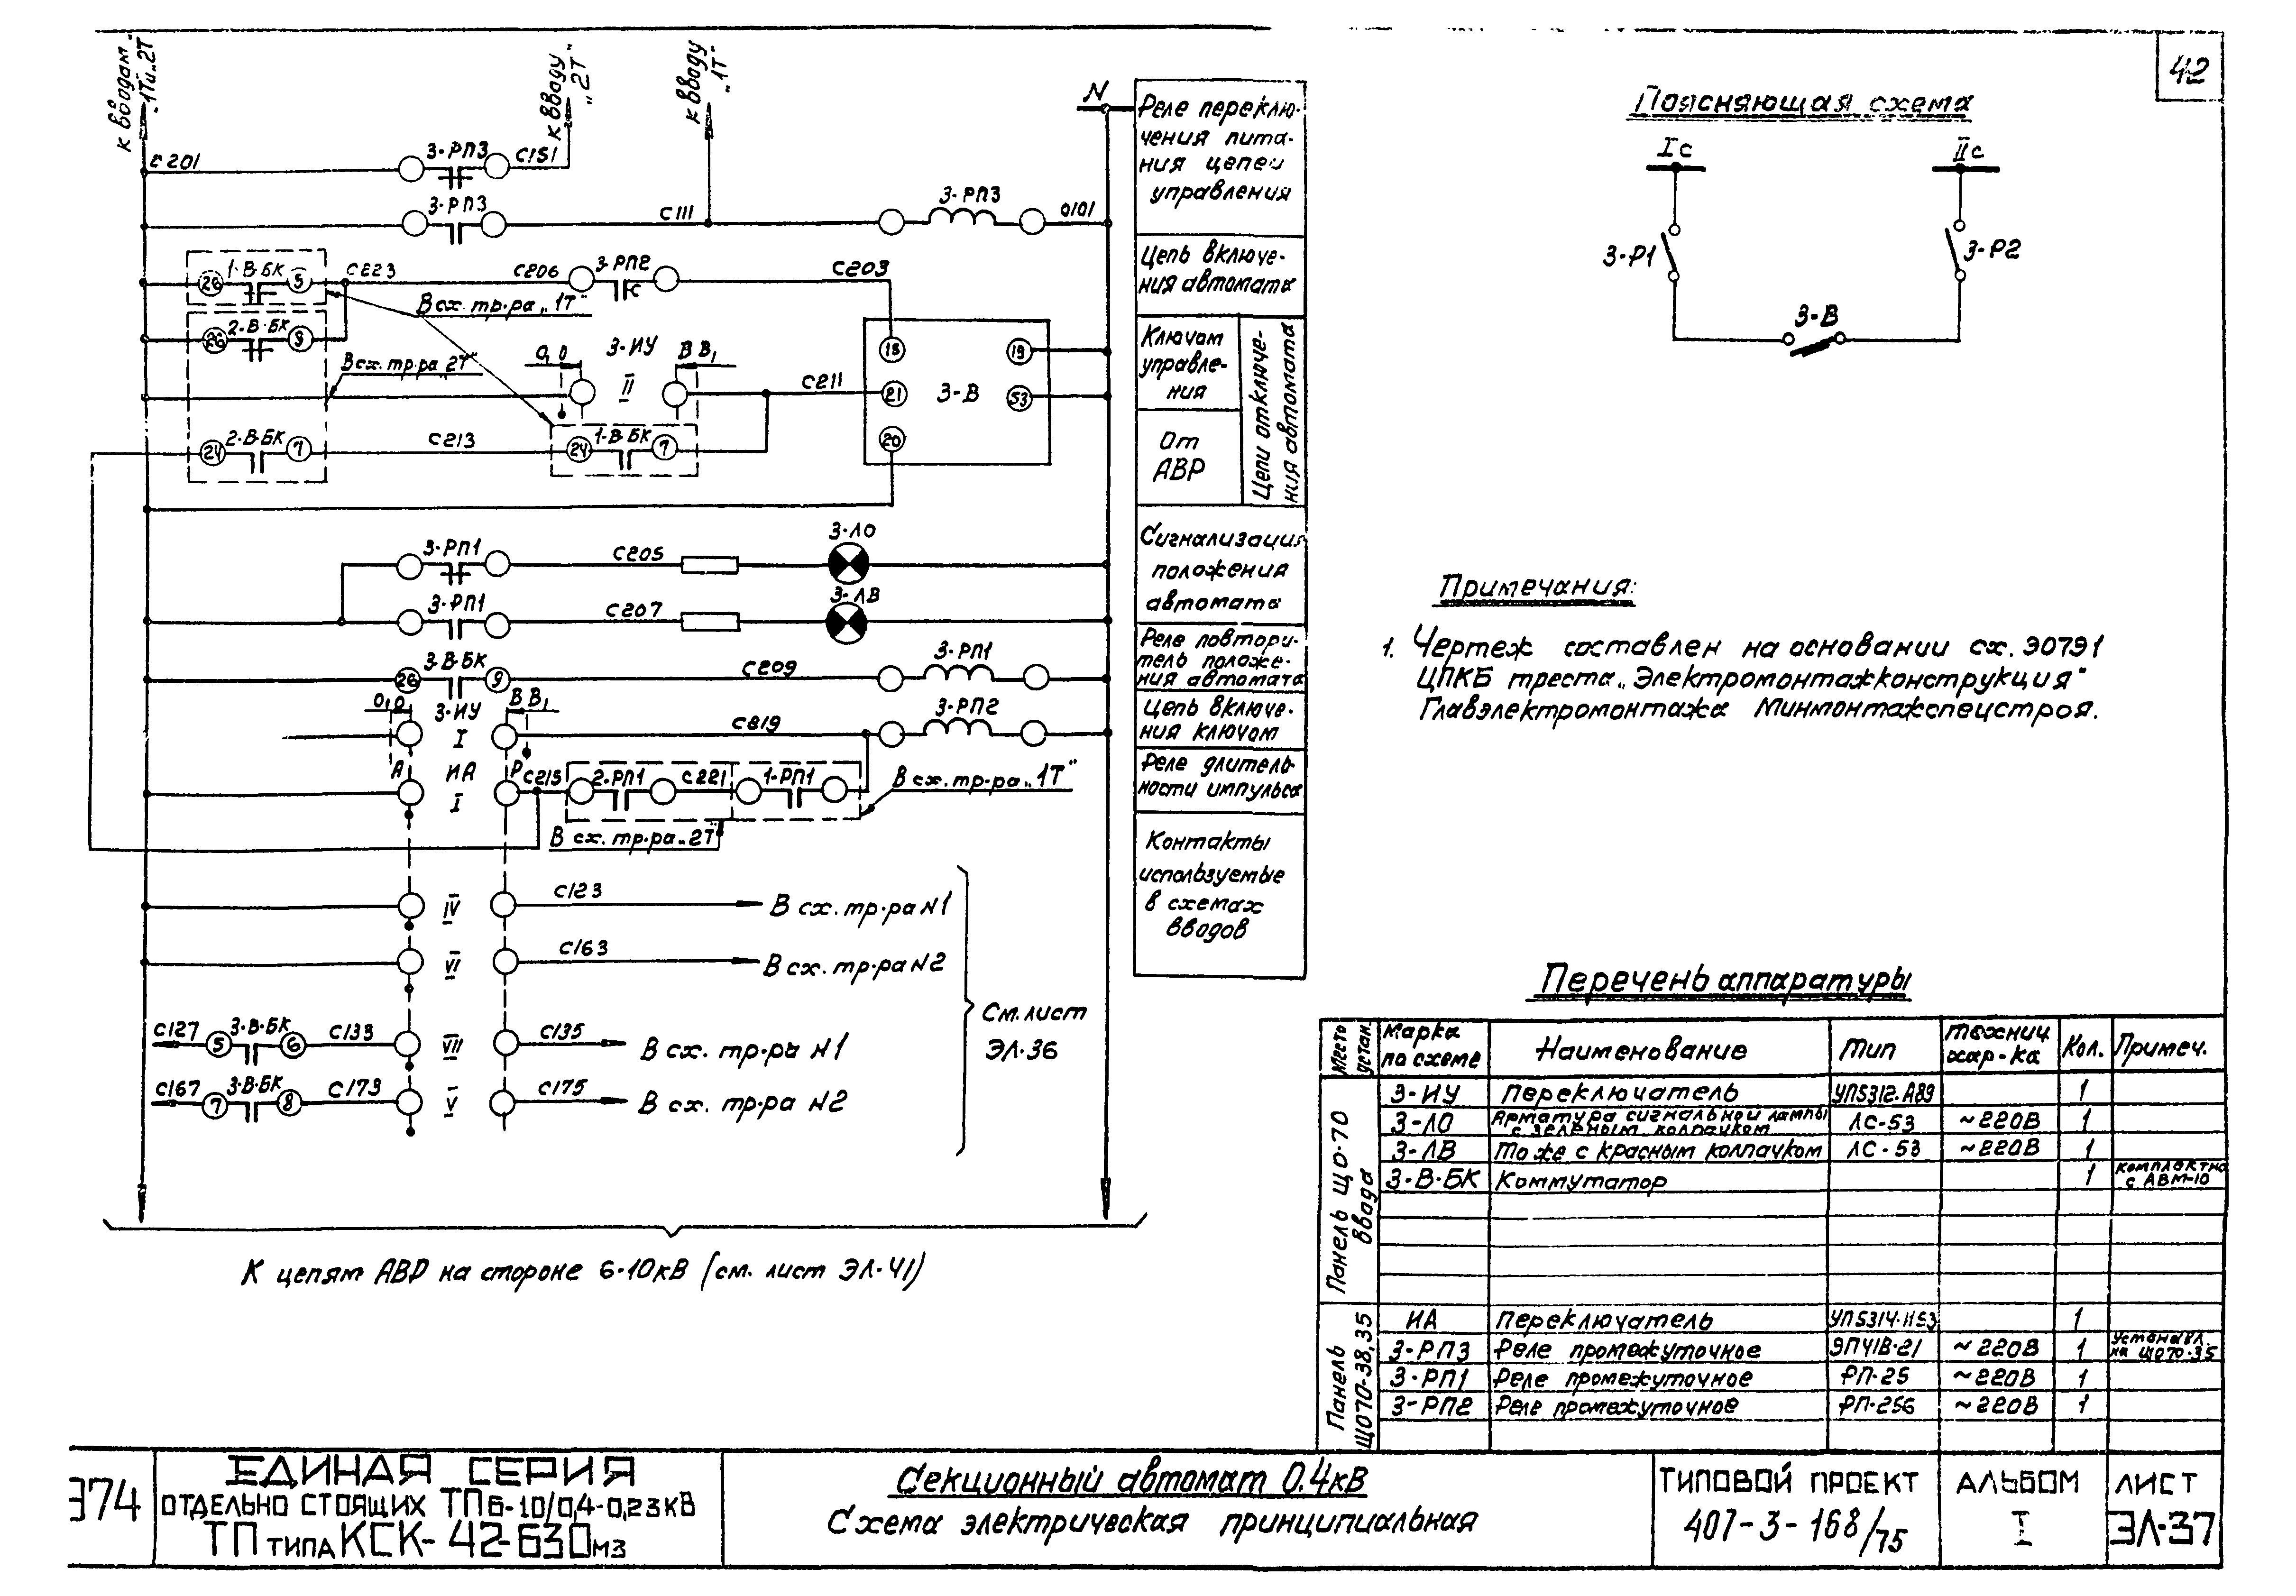 42
к вводам
„1Т" и „2Т"
к вводу
„2Т"
к вводу
„1Т"
N
С201
3-РП3
С151
3-РП3
С111
3-РП3
0101
26
1-В-БК
С223
С206
3-РП2
С203
В сх. тр-ра „1Т"
26
2-В-БК
9
В сх. тр-ра „2Т"
0,0
3-ИУ
В В₁
II
С211
18
19
21
3-В
53
20
24
2-В-БК
7
С213
24
1-В-БК
7
3-РП1
С205
3-ЛО
3-РП1
С207
3-ЛВ
26
3-В-БК
9
С209
3-РП1
0,0
3-ИУ
В В₁
I
С219
3-РП2
А
ИА
Р
I
С215
2-РП1
С221
1-РП1
В сх. тр-ра „1Т"
В сх. тр-ра „2Т"
IV
С123
В сх. тр-ра N1
VI
С163
В сх. тр-ра N2
С127
5
3-В-БК
6
С133
VII
С135
В сх. тр-ра N1
С167
7
3-В-БК
8
С173
V
С175
В сх. тр-ра N2
См. лист
ЭЛ-36
К цепям АВР на стороне 6-10кВ (см. лист ЭЛ-41)
Реле переклю-
чения пита-
ния цепей
управления
Цепь включе-
ния автомата
Ключом
управле-
ния
От
АВР
Цепи отключе-
ния автомата
Сигнализация
положения
автомата
Реле повтори-
тель положе-
ния автомата
Цепь включе-
ния ключом
Реле длитель-
ности импульса
Контакты
используемые
в схемах
вводов
Поясняющая схема
Iс
IIс
3-Р1
3-Р2
3-В
Примечания:
1. Чертеж составлен на основании сх. Э0791
ЦПКБ треста „Электромонтажконструкция"
Главэлектромонтажа Минмонтажспецстроя.
Перечень аппаратуры
Место устан.
Марка по схеме
Наименование
Тип
Технич хар-ка
Кол.
Примеч.
Панель ЩО-70 ввода
3-ИУ Переключатель УП5312-А89 1
3-ЛО Арматура сигнальной лампы с зеленым колпачком ЛС-53 ~220В 1
3-ЛВ То же с красным колпачком ЛС-53 ~220В 1
3-В-БК Коммутатор 1 комплектно с АВМ-10
Панель ЩО70-38,35
ИА Переключатель 1
3-РП3 Реле промежуточное ЭП41В-21 ~220В 1 Установл. на ЩО70-35
3-РП1 Реле промежуточное РП-25 ~220В 1
3-РП2 Реле промежуточное РП-256 ~220В 1
Э74
ЕДИНАЯ СЕРИЯ
ОТДЕЛЬНО СТОЯЩИХ ТП6-10/0,4-0,23кВ
ТП ТИПА КСК-42-630М3
Секционный автомат 0.4кВ
Схема электрическая принципиальная
ТИПОВОЙ ПРОЕКТ
407-3-168/75
АЛЬБОМ
I
ЛИСТ
ЭЛ-37